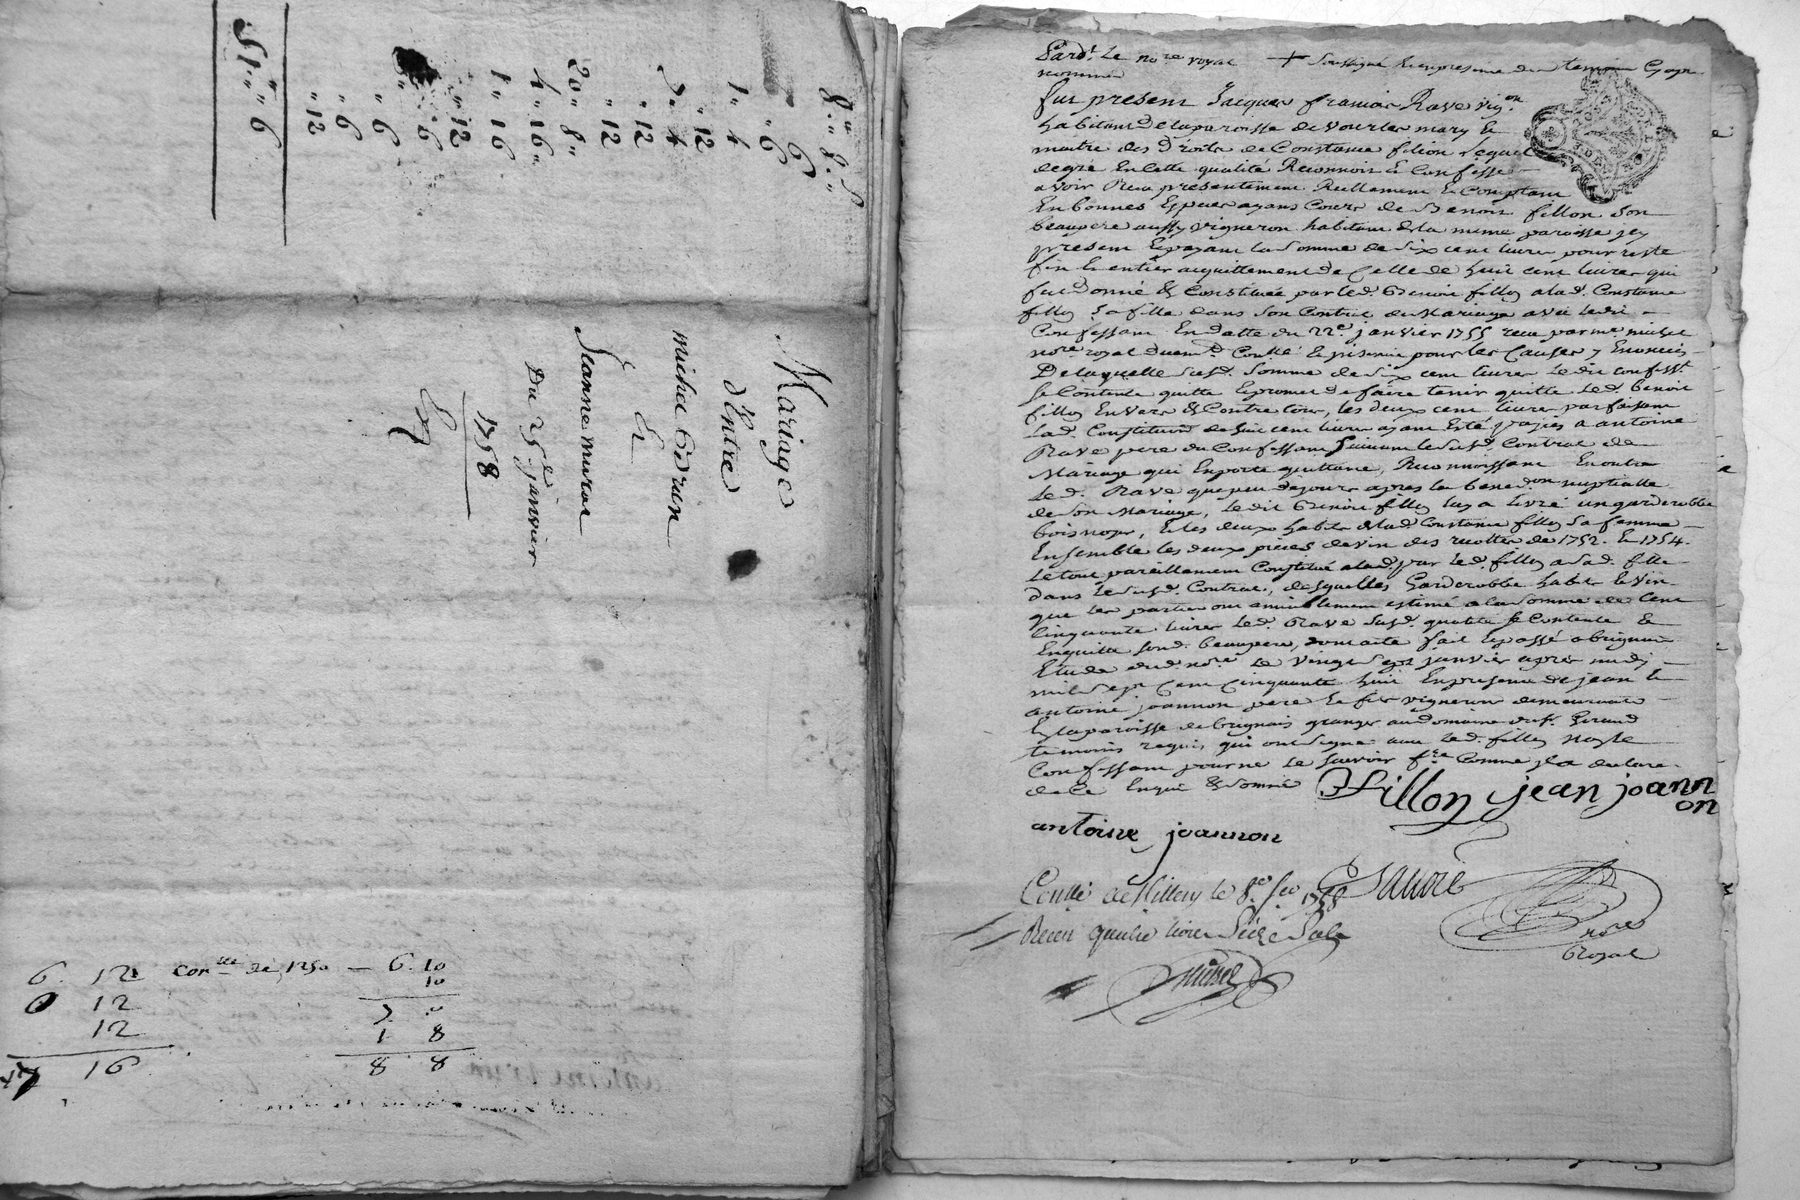 8.. 8.. 6
" 6
1" 4
" 12
7" 4
" 12
" 12
20" 8"
4" 16"
1" 16
" 12
" 6
" 6
" 6
" 12
51.. " 6
Mariage
d'Entre
michel Brun
Et
Jeanne murat
Du 25e janvier
1758
6. 12 Conlle de 1250 — 6. 10
0 12 10
12 7 0
1 8
16 8 8
Pard.t Le no.re royal + soussigné Et en presence des temoins
nommés
fut present Jacques francois Rave vig.on
habitant de la paroisse de vourles mary Et
maitre des Droits de Constance fillon Lequel
de gré En cette qualité Reconnoit Et Confesse
avoir Receu presentement Reellement Et Comptant
En bonnes Especes ayant Cours de Benoit fillon son
beaupere aussy vigneron habitant de la meme paroisse jcy
present Et payant la somme de six cent livres pour reste
fin Et entier acquittement de Celle de huit cent livres qui
fut Donné Et Constituée par led. Benoit fillon a lad. Constance
fillon sa fille dans son Contrat de Mariage avec ledit
Confessant En datte du 22e janvier 1755 receu par me michel
no.re royal duem.t Conllé Et jnsinué pour les Causes y Enoncées
De laquelle susd. somme de six cent livres Ledit Confess.t
se Contente quitte Et promet de faire tenir quitte led. benoit
fillon Envers Et Contre tous, les deux cent livres parfaisant
lad. Constitution de huit cent livres ayant Eté payées a antoine
Rave pere du Confessant suivant le susd. Contrat de
Mariage qui En porte quittance, Reconnoissant En outre
Led. Rave que peu de jours apres la bened.on nuptialle
de son Mariage, Ledit Benoit fillon luy a livré un garderobbe
bois noyer, Et les deux habits de lad. Constance fillon sa femme
Ensemble les deux pieces de vin des recoltes de 1752. Et 1754.
Le tout pareillement Constitué par led. fillon a sad. fille
dans le susd. Contrat, desquelles Garderobbe habits Et vin
que les parties ont amiablement estimé a la somme de Cent
Cinquante livres Led. Rave susd. qualité se Contente Et
En quitte sond. beaupere, dont acte fait Et passé a brignais
Etude dud. no.re Le vingt sept janvier apres midy
mil sept Cent Cinquante huit En presence de jean Et
antoine joannon pere Et fils vignerons demeurants
En la paroisse de brignais grangers au domaine du sr. Giraud
temoins requis qui ont signé avec led. fillon Non le
Confessant pour ne le scavoir f.re Comme jl a declaré
de ce Enquis Et sommé
Fillon jean joann
on
antoine joannon
Conllé a Millery le 8.e fev 1758
Reçu quatre livres Seize Sols
Michel
Sauvoie
no.re
Royal